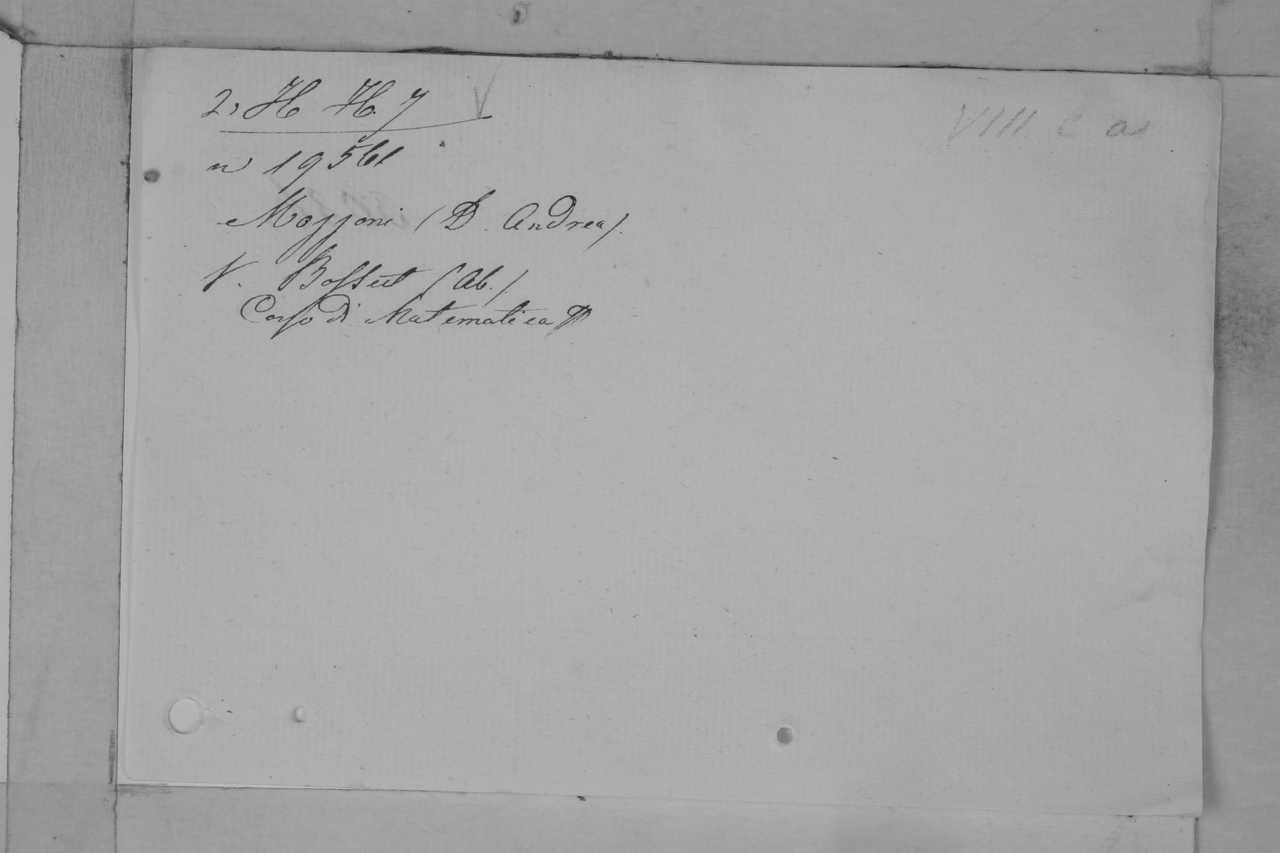 2, H H. 7 V
VIII c
n 19561
Mozzoni (D. Andrea).
V. Bossut (Ab.)
Corso di Matematica